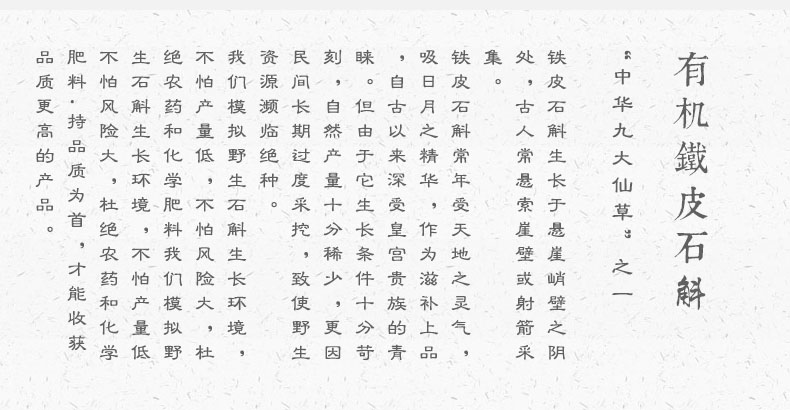 有机鐵皮石斛
“中华九大仙草”之一
铁皮石斛生长于悬崖峭壁之阴
处，古人常悬索崖壁或射箭采
集。
铁皮石斛常年受天地之灵气，
吸日月之精华，作为滋补上品
，自古以来深受皇宫贵族的青
睐。但由于它生长条件十分苛
刻，自然产量十分稀少，更因
民间长期过度采挖，致使野生
资源濒临绝种。
我们模拟野生石斛生长环境，
不怕产量低，不怕风险大，杜
绝农药和化学肥料我们模拟野
生石斛生长环境，不怕产量低
不怕风险大，杜绝农药和化学
肥料·持品质为首，才能收获
品质更高的产品。